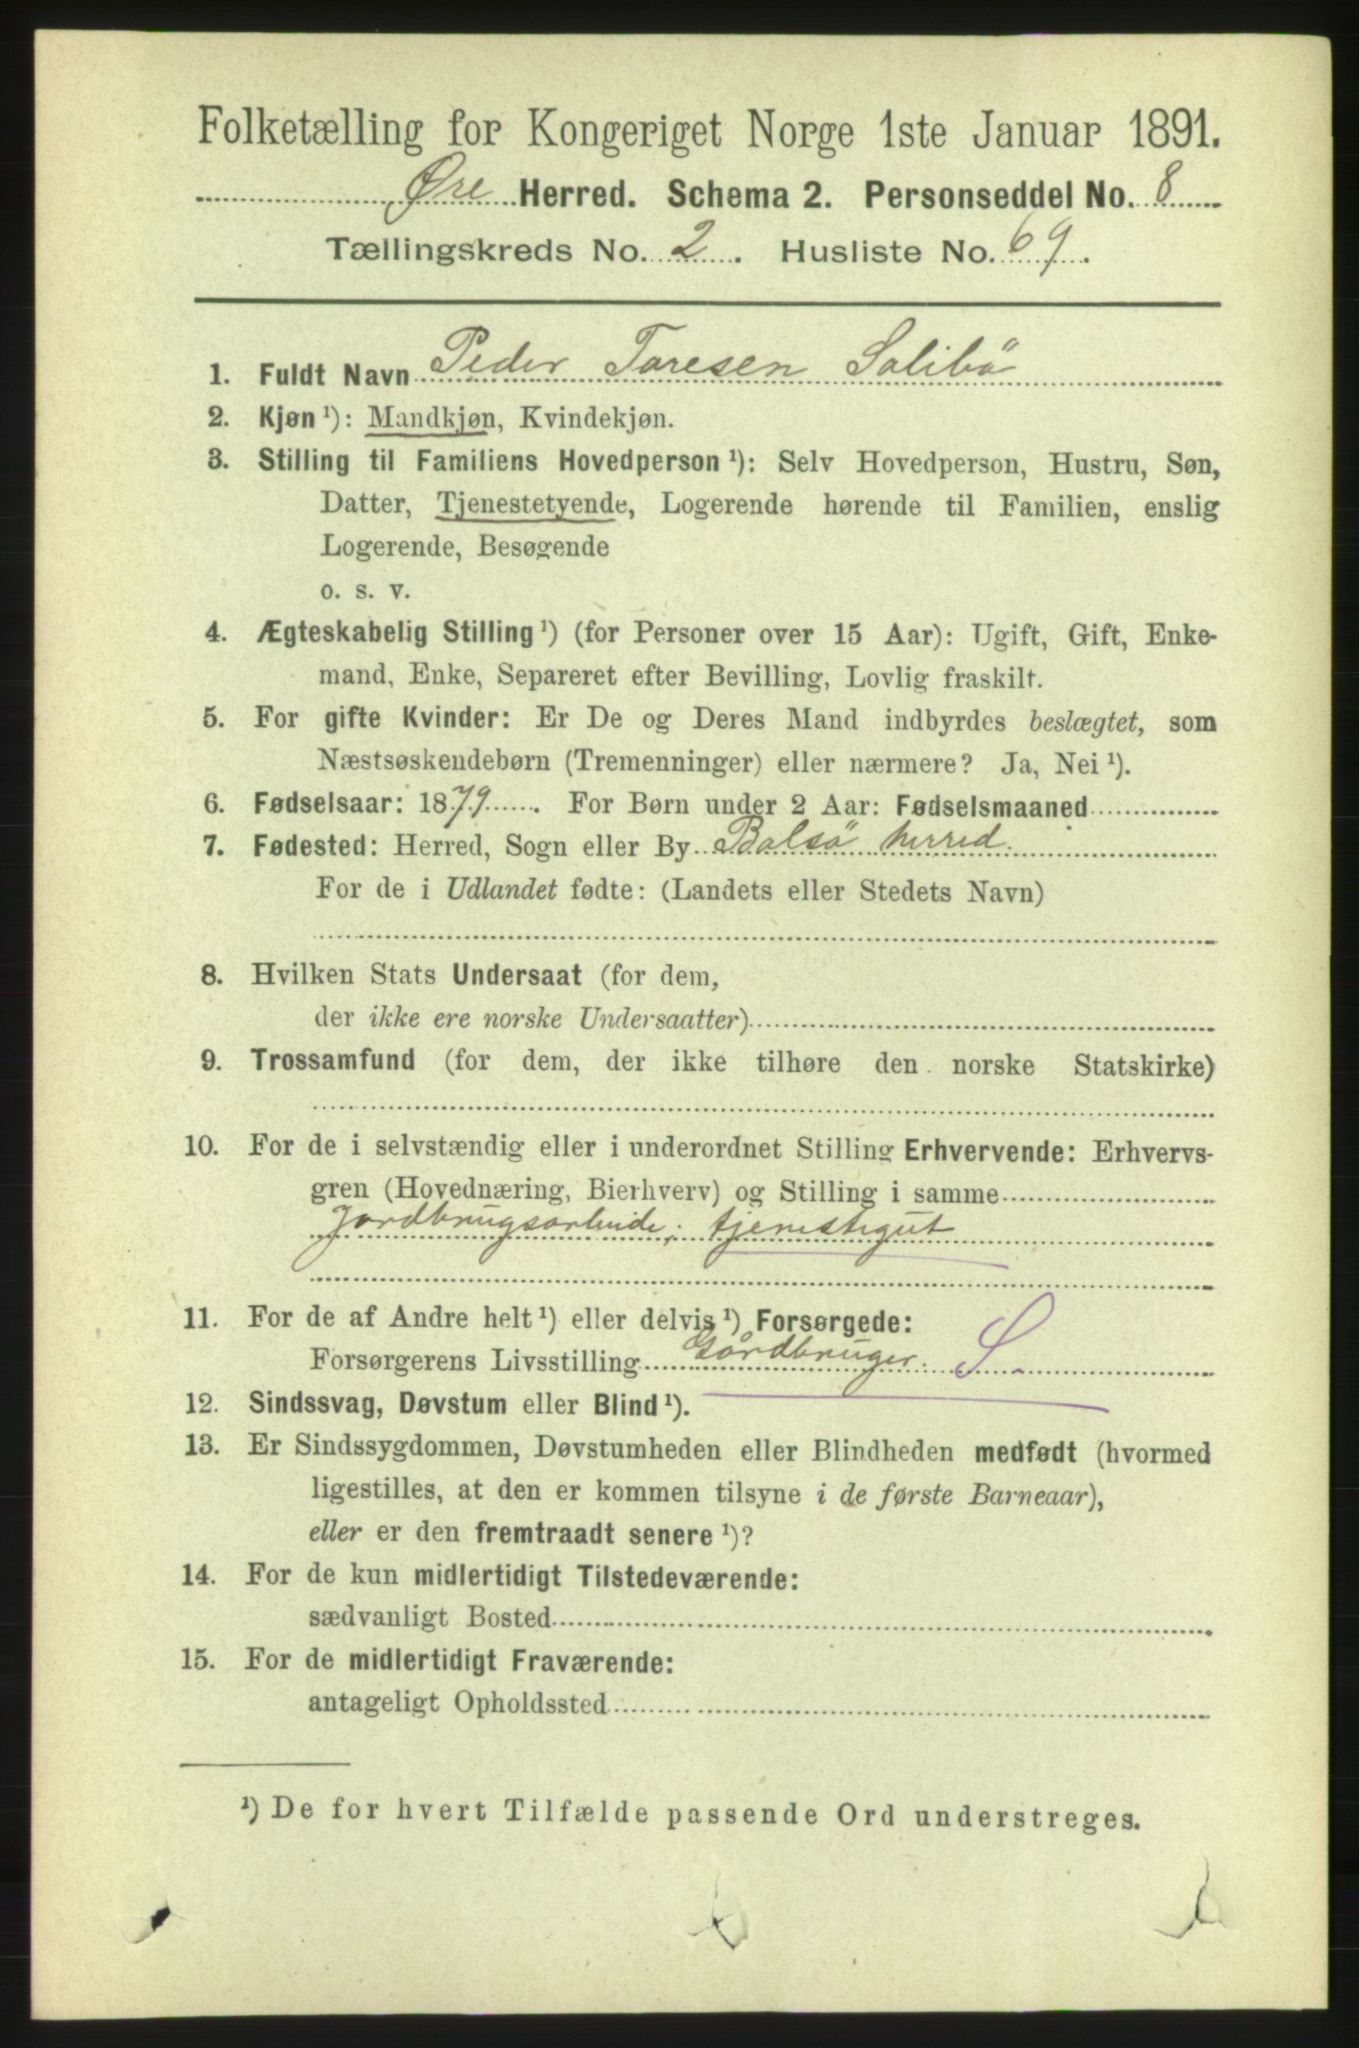 Folketælling for Kongeriget Norge 1ste Januar 1891.
Øre Herred. Schema 2. Personseddel No. 8
Tællingskreds No. 2. Husliste No. 69.
1. Fuldt Navn Peder Toresen Solibö
2. Kjøn ¹): Mandkjøn, Kvindekjøn.
3. Stilling til Familiens Hovedperson ¹): Selv Hovedperson, Hustru, Søn,
Datter, Tjenestetyende, Logerende hørende til Familien, enslig
Logerende, Besøgende
o. s. v.
4. Ægteskabelig Stilling ¹) (for Personer over 15 Aar): Ugift, Gift, Enke-
mand, Enke, Separeret efter Bevilling, Lovlig fraskilt.
5. For gifte Kvinder: Er De og Deres Mand indbyrdes beslægtet, som
Næstsøskendebørn (Tremenninger) eller nærmere? Ja, Nei ¹).
6. Fødselsaar: 1879. For Børn under 2 Aar: Fødselsmaaned
7. Fødested: Herred, Sogn eller By Bolsö herred.
For de i Udlandet fødte: (Landets eller Stedets Navn)
8. Hvilken Stats Undersaat (for dem,
der ikke ere norske Undersaatter)
9. Trossamfund (for dem, der ikke tilhøre den norske Statskirke)
10. For de i selvstændig eller i underordnet Stilling Erhvervende: Erhvervs-
gren (Hovednæring, Bierhverv) og Stilling i samme
Jordbrugsarbeide, tjenestegut
11. For de af Andre helt ¹) eller delvis ¹) Forsørgede:
Forsørgerens Livsstilling Gårdbruger. S.
12. Sindssvag, Døvstum eller Blind ¹).
13. Er Sindssygdommen, Døvstumheden eller Blindheden medfødt (hvormed
ligestilles, at den er kommen tilsyne i de første Barneaar),
eller er den fremtraadt senere ¹)?
14. For de kun midlertidigt Tilstedeværende:
sædvanligt Bosted
15. For de midlertidigt Fraværende:
antageligt Opholdssted
¹) De for hvert Tilfælde passende Ord understreges.